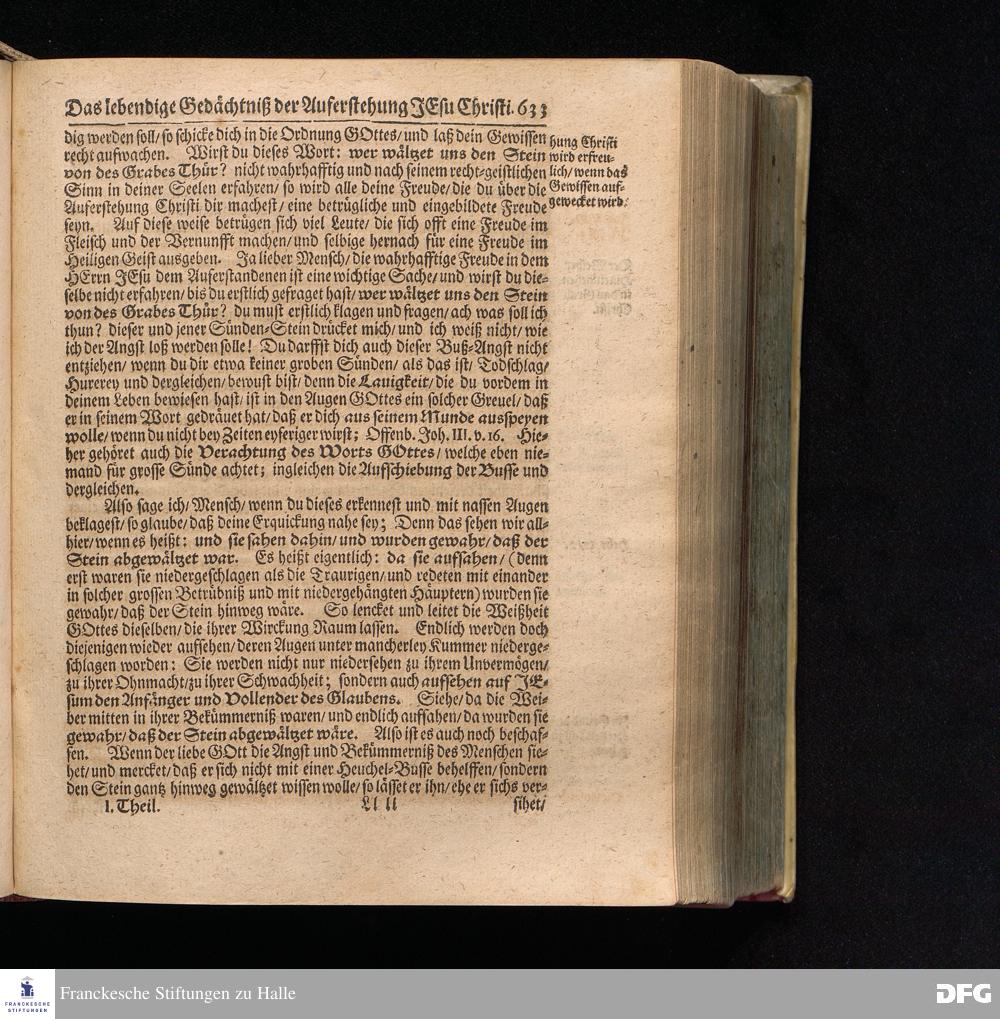 Das lebendige Gedächtniß der Auferstehung JEsu Christi. 633
dig werden soll/ so schicke dich in die Ordnung GOttes/ und laß dein Gewissen
recht aufwachen. Wirst du dieses Wort: wer wältzet uns den Stein
von des Grabes Thür? nicht wahrhafftig und nach seinem recht-geistlichen
Sinn in deiner Seelen erfahren/ so wird alle deine Freude/ die du über die
Auferstehung Christi dir machest/ eine betrügliche und eingebildete Freude
seyn. Auf diese weise betrügen sich viel Leute/ die sich offt eine Freude im
Fleisch und der Vernunfft machen/ und selbige hernach für eine Freude im
Heiligen Geist ausgeben. Ja lieber Mensch/ die wahrhafftige Freude in dem
HErrn JEsu dem Auferstandenen ist eine wichtige Sache/ und wirst du die-
selbe nicht erfahren/ bis du erstlich gefraget hast/ wer wältzet uns den Stein
von des Grabes Thür? du must erstlich klagen und fragen/ ach was soll ich
thun? dieser und jener Sünden-Stein drücket mich/ und ich weiß nicht/ wie
ich der Angst loß werden solle! Du darffst dich auch dieser Buß-Angst nicht
entziehen/ wenn du dir etwa keiner groben Sünden/ als das ist/ Todschlag/
Hurerey und dergleichen/ bewust bist/ denn die Lauigkeit/ die du vordem in
deinem Leben bewiesen hast/ ist in den Augen GOttes ein solcher Greuel/ daß
er in seinem Wort gedräuet hat/ daß er dich aus seinem Munde ausspeyen
wolle/ wenn du nicht bey Zeiten eyferiger wirst; Offenb. Joh. III. v. 16. Hie-
her gehöret auch die Verachtung des Worts GOttes/ welche eben nie-
mand für grosse Sünde achtet; ingleichen die Aufschiebung der Busse und
dergleichen.
Also sage ich/ Mensch/ wenn du dieses erkennest und mit nassen Augen
beklagest/ so glaube/ daß deine Erquickung nahe sey; Denn das sehen wir all-
hier/ wenn es heißt: und sie sahen dahin/ und wurden gewahr/ daß der
Stein abgewältzet war. Es heißt eigentlich: da sie aufsahen/ (denn
erst waren sie niedergeschlagen als die Traurigen/ und redeten mit einander
in solcher grossen Betrübniß und mit niedergehängten Häuptern) wurden sie
gewahr/ daß der Stein hinweg wäre. So lencket und leitet die Weißheit
GOttes dieselben/ die ihrer Wirckung Raum lassen. Endlich werden doch
diejenigen wieder aufsehen/ deren Augen unter mancherley Kummer niederge-
schlagen worden: Sie werden nicht nur niedersehen zu ihrem Unvermögen/
zu ihrer Ohnmacht/ zu ihrer Schwachheit; sondern auch aufsehen auf JE-
sum den Anfänger und Vollender des Glaubens. Siehe/ da die Wei-
ber mitten in ihrer Bekümmerniß waren/ und endlich aufsahen/ da wurden sie
gewahr/ daß der Stein abgewältzet wäre. Also ist es auch noch beschaf-
fen. Wenn der liebe GOtt die Angst und Bekümmerniß des Menschen sie-
het/ und mercket/ daß er sich nicht mit einer Heuchel-Busse behelffen/ sondern
den Stein gantz hinweg gewältzet wissen wolle/ so lässet er ihn/ ehe er sichs ver-
I. Theil. Ll ll sihet/
hung Christi
wird erfreu-
lich/ wenn das
Gewissen auf-
gewecket wird.
FRANCKESCHE
STIFTUNGEN
Franckesche Stiftungen zu Halle
DFG